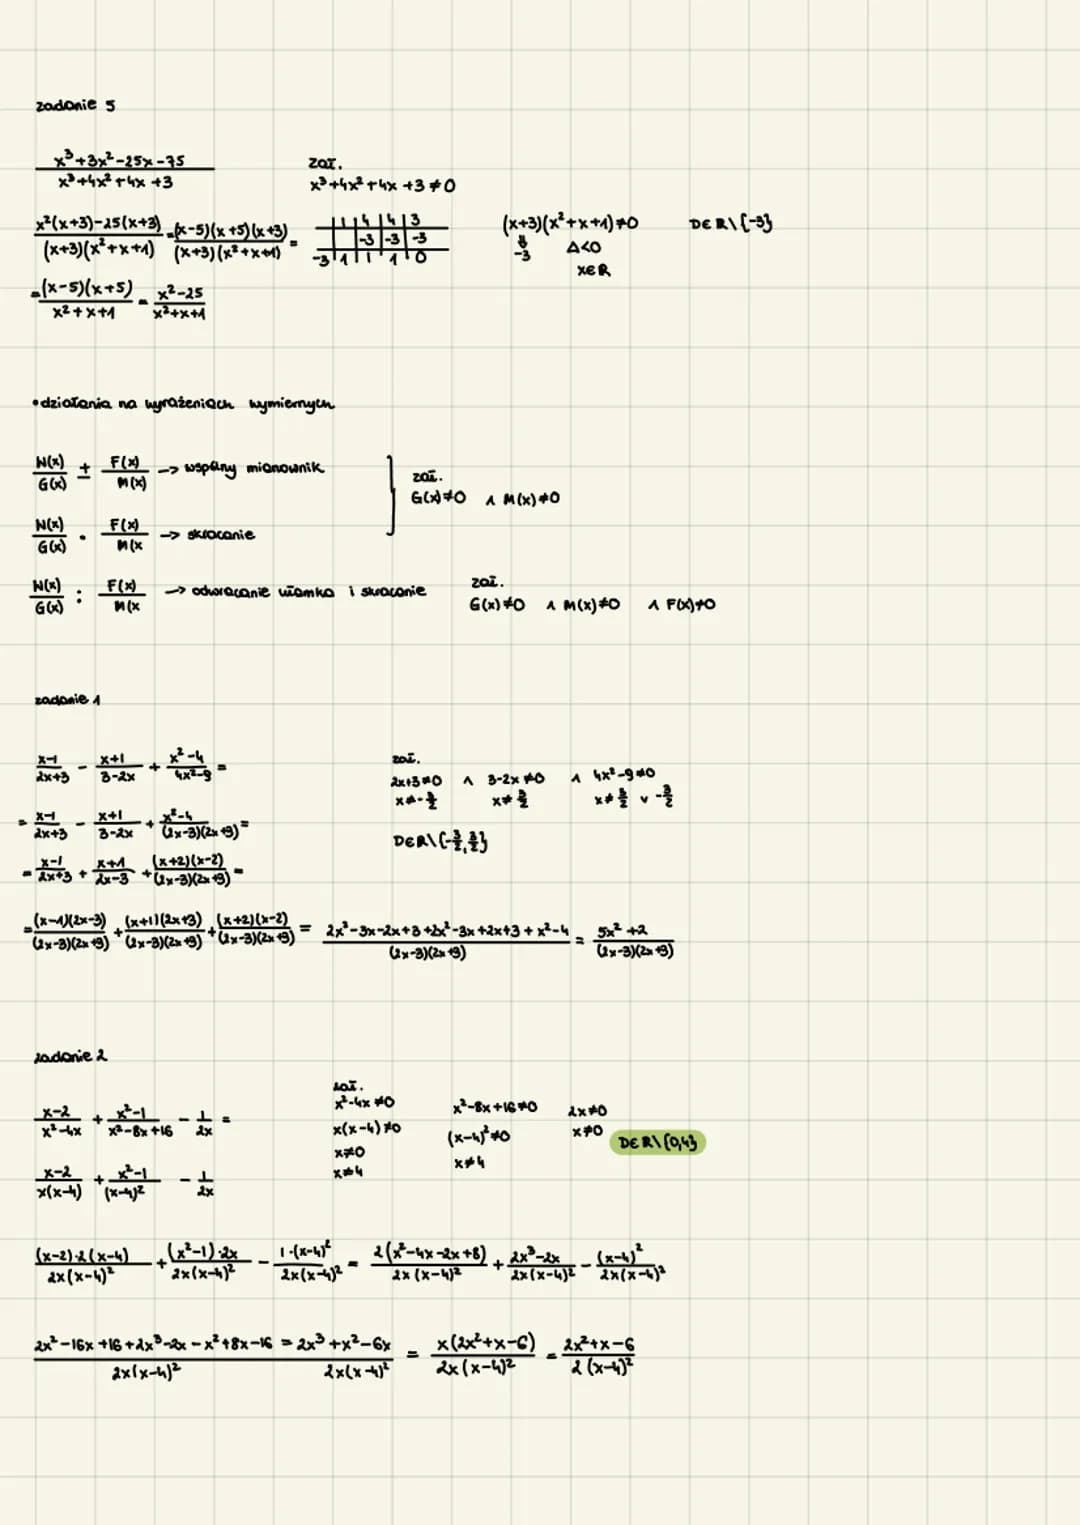 zadanie 5
x³+3x²-25x-75 / x³+4x²+4x+3
zał.
x³+4x²+4x+3≠0
x²(x+3)-25(x+3) / (x+3)(x²+x+1) = (x-5)(x+5)(x+3) / (x+3)(x²+x+1) =
1 | 4 | 4 | 3
-3 | -3 | -3
-3 | 1 | 1 | 1 | 0
(x+3)(x²+x+1)≠0
⇓
-3
Δ<0
x∈R
D∈R\{-3}
= (x-5)(x+5) / x²+x+1 = x²-25 / x²+x+1
• działania na wyrażeniach wymiernych
N(x)/G(x) ± F(x)/M(x) -> wspólny mianownik
zał.
G(x)≠0 ∧ M(x)≠0
N(x)/G(x) · F(x)/M(x -> skracanie
N(x)/G(x) : F(x)/M(x -> odwracanie ułamka i skracanie
zał.
G(x)≠0 ∧ M(x)≠0 ∧ F(x)≠0
zadanie 1
x-1/2x+3 - x+1/3-2x + x²-4/4x²-9 =
zał.
2x+3≠0 ∧ 3-2x≠0 ∧ 4x²-9≠0
x≠-3/2 x≠3/2 x≠3/2 ∨ -3/2
= x-1/2x+3 - x+1/3-2x + x²-4/(2x-3)(2x+3) =
D∈R\{-3/2,3/2}
= x-1/2x+3 + x+1/2x-3 + (x+2)(x-2)/(2x-3)(2x+3) =
= (x-1)(2x-3)/(2x-3)(2x+3) + (x+1)(2x+3)/(2x-3)(2x+3) + (x+2)(x-2)/(2x-3)(2x+3) = 2x²-3x-2x+3+2x²-3x+2x+3+x²-4/(2x-3)(2x+3) = 5x²+2/(2x-3)(2x+3)
zadanie 2
x-2/x²-4x + x²-1/x²-8x+16 - 1/2x =
zał.
x²-4x≠0
x(x-4)≠0
x≠0
x≠4
x²-8x+16≠0
(x-4)²≠0
x≠4
2x≠0
x≠0
D∈R\{0,4}
x-2/x(x-4) + x²-1/(x-4)² - 1/2x
(x-2)·2(x-4)/2x(x-4)² + (x²-1)·2x/2x(x-4)² - 1·(x-4)²/2x(x-4)² = 2(x²-4x-2x+8)/2x(x-4)² + 2x³-2x/2x(x-4)² - (x-4)²/2x(x-4)²
2x²-16x+16+2x³-2x-x²+8x-16/2x(x-4)² = 2x³+x²-6x/2x(x-4)² = x(2x²+x-6)/2x(x-4)² = 2x²+x-6/2(x-4)²